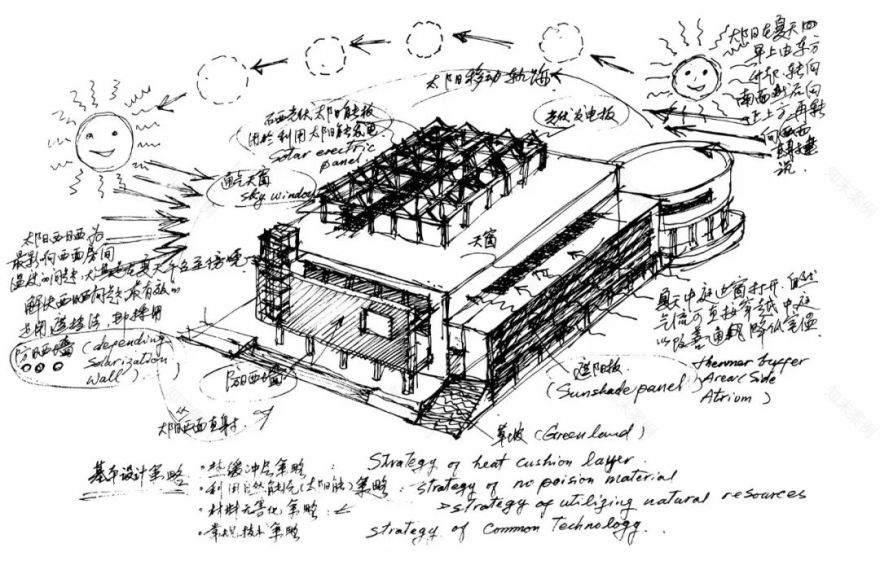 太阳在夏天四
早上由东方
升起,转向
南面
上方再转
向西面
太阳移动轨迹
西面光伏太阳能板
用于利用太阳能发电
Solar erectric
panel
光伏发电板
通气天窗
sky window
天窗
太阳西晒为
最影响西面房间
温度的问题,
解决西晒问题最有效的
是用遮挡法,即采用
防西晒墙 (depending
Solarization
Wall)
防西晒墙
太阳西面直射
夏天中庭边窗打开,自然
气流可直接穿越中庭
以改善通风降低室温
遮阳板
(Sunshade panel)
thermor buffer
Area (Side
Atrium)
草坡 (Green land)
基本设计策略
·热缓冲层策略 : Strategy of heat cushion layer.
·利用自然能源(太阳能)策略 : strategy of no poision material
·材料无害化策略 : strategy of utilizing natural resources
·常规技术策略 strategy of Common Technology.
知末案例